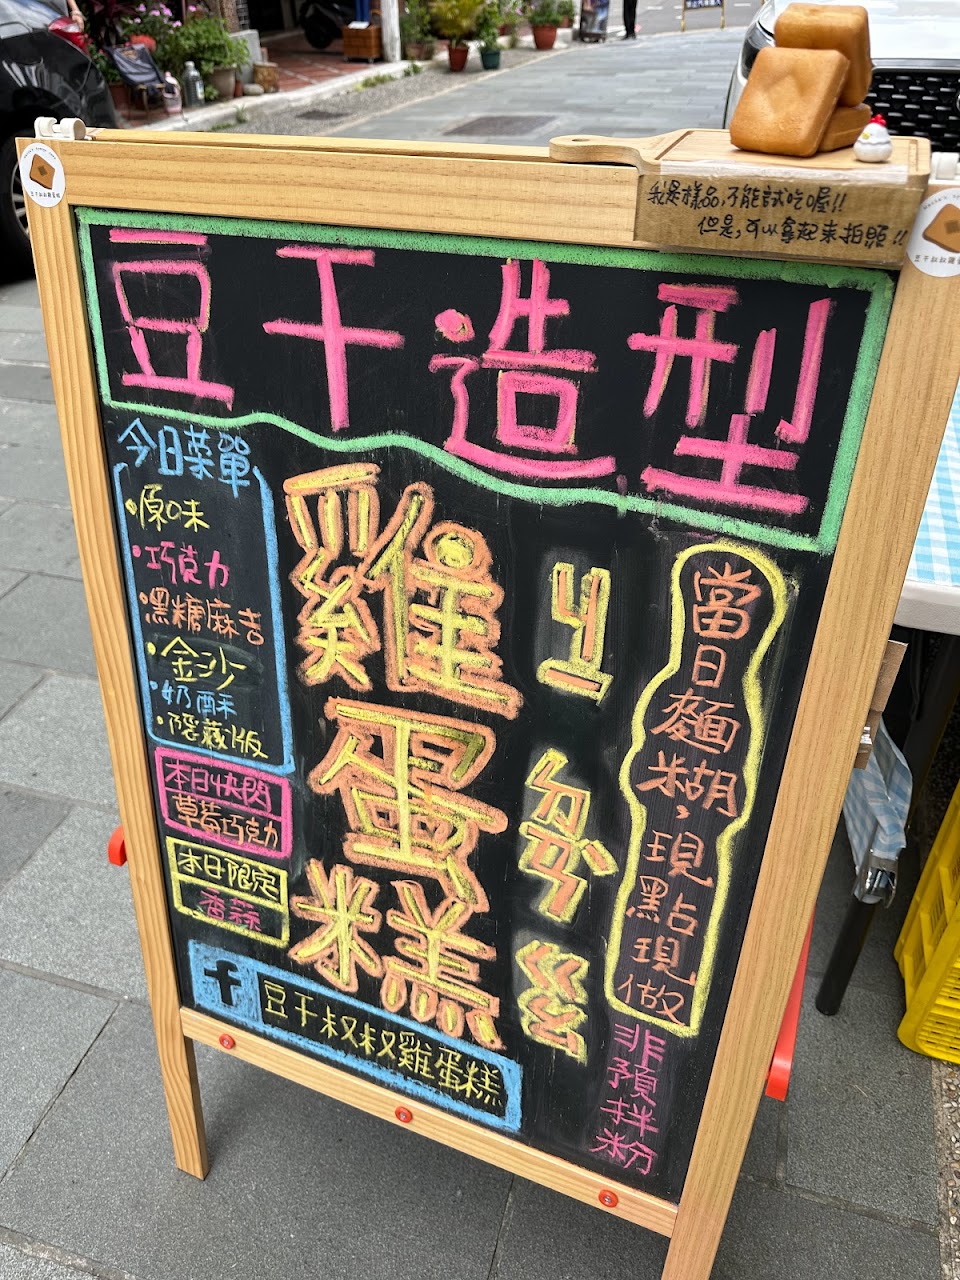 我是樣品,不能試吃喔!!
但是,可以拿起來拍照!!
豆干叔叔雞蛋糕
豆干叔叔雞蛋糕
豆干造型
雞蛋糕
今日菜單
•原味
•巧克力
•黑糖麻吉
•金沙
•奶酥
•隱藏版
本日快閃
草莓巧克力
本日限定
香蒜
f 豆干叔叔雞蛋糕
當日麵糊,現點現做
非預拌粉